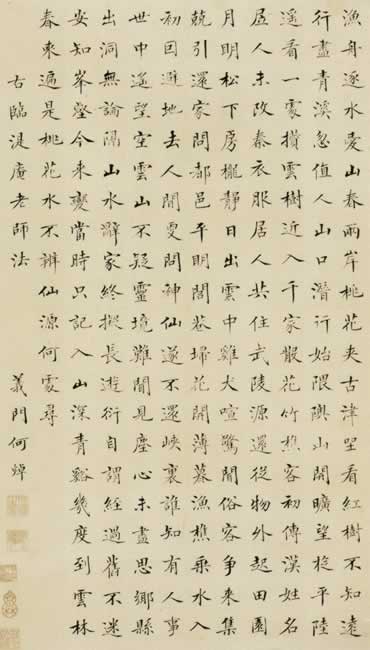 漁舟逐水愛山春兩岸桃花夾古津坐看紅樹不知遠
行盡青溪忽值人山口潛行始隈隩山開曠望旋平陸
遙看一處攢雲樹近入千家散花竹樵客初傳漢姓名
居人未改秦衣服居人共住武陵源還從物外起田園
月明松下房櫳靜日出雲中雞犬喧驚聞俗客爭來集
競引還家問都邑平明閭巷掃花開薄暮漁樵乘水入
初因避地去人間更問神仙遂不還峽裏誰知有人事
世中遙望空雲山不疑靈境難聞見塵心未盡思鄉縣
出洞無論隔山水辭家終擬長遊衍自謂經過舊不迷
安知峯壑今來變當時只記入山深青谿幾度到雲林
春來遍是桃花水不辨仙源何處尋
古臨湜庵老師法 義門何焯